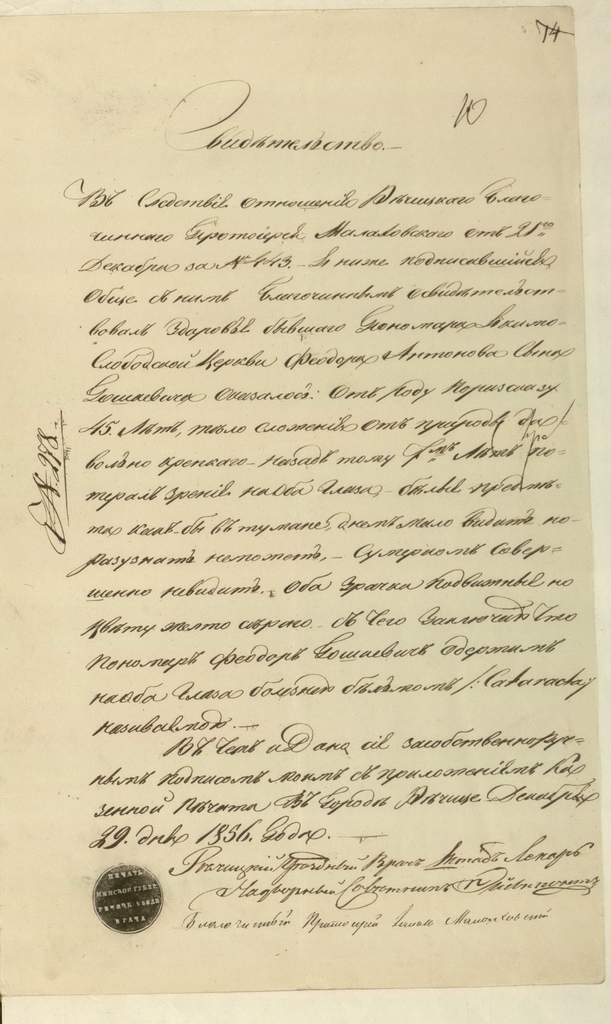 74
10
Свидѣтельство.
Въ Слѣдствіе отношенія Рѣчицкаго Благо-
чиннаго Протоіерея Малаховскаго отъ 21го
Декабря за № 443. Я ниже подписавшійся
Обще съ нимъ Благочиннымъ освидѣтельст-
вовалъ Здоровье бывшаго Пономаря Якимо-
Слободской Церкви Феодора Антонова Сына
Гошкевича Оказалось: Отъ Роду
45. Лѣтъ, тѣло сложенія отъ природы до-
вольно крепкаго назадъ тому Лѣтъ по-
терялъ Зреніе на Оба Глаза
какъ-бы въ тумане, Днемъ мало Видитъ но
разузнать неможетъ, - Сумеркомъ Совер-
шенно невидитъ. Оба Зрачка Подвижные но
Цвѣту желто сѣраго. Съ Чего Заключаю Что
Пономаръ Феодоръ Гошкевичъ Одержимъ
на Оба Глаза болезнею бѣльмомъ /: Cataracta
называемою. —
Въ Чемъ и Дана сіе за собственноруч-
нымъ подписомъ моимъ съ приложеніемъ Ка-
зенной Печати Въ Городѣ Рѣчице Декабря
29. дня 1836. Года. —
Рѣчицкій Уѣздный Врачъ Штабъ Лекарь
Надворный Советникъ
Благочинный Протоіерей Малаховскій
№ 278.
ПЕЧАТЬ
МИНСКОЙ ГУБЕР.
РѢЧИЦ: УѢЗДН
ВРАЧА